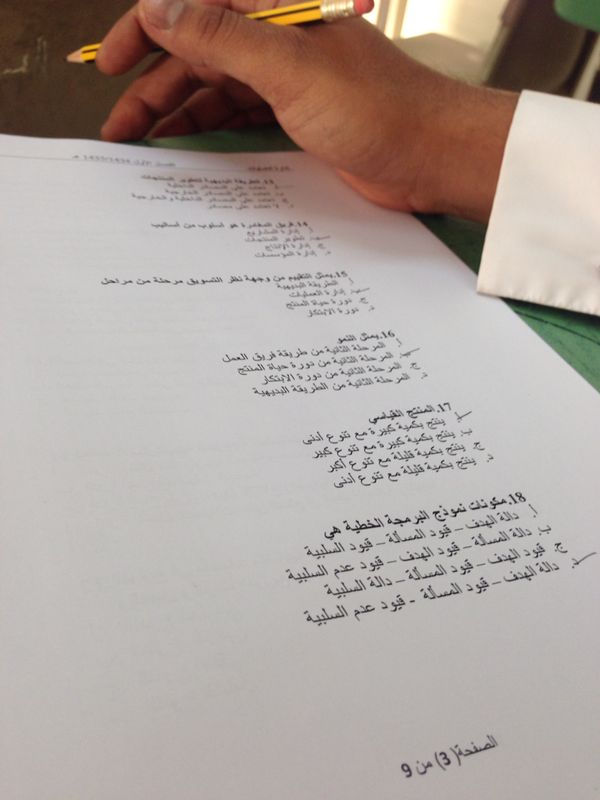 إدارة العمليات الفصل الأول 1433/1434 هـ
13.الطريقة البديهية لتطوير المنتجات
أ. تعتمد على المصادر الداخلية
ب. تعتمد على المصادر الخارجية
ج. تعتمد على المصادر الداخلية و الخارجية
د. لا تعتمد على مصادر
14.فريق المغامرة هو أسلوب من أساليب
أ. إدارة المشاريع
ب. تطوير المنتجات
ج. إدارة الإنتاج
د. إدارة المؤسسات
15.يمثل التقييم من وجهة نظر التسويق مرحلة من مراحل
أ. الطريقة البديهية
ب. إدارة العمليات
ج. دورة حياة المنتج
د. دورة الابتكار
16.يمثل النمو
أ. المرحلة الثانية من طريقة فريق العمل
ب. المرحلة الثانية من دورة حياة المنتج
ج. المرحلة الثانية من دورة الابتكار
د. المرحلة الثانية من الطريقة البديهية
17.المنتج القياسي
أ. ينتج بكمية كبيرة مع تنوع أدنى
ب. ينتج بكمية كبيرة مع تنوع كبير
ج. ينتج بكمية قليلة مع تنوع أكبر
د. ينتج بكمية قليلة مع تنوع أدنى
18.مكونات نموذج البرمجة الخطية هي
أ. دالة الهدف – قيود المسألة – قيود السلبية
ب. دالة المسألة – قيود الهدف – قيود عدم السلبية
ج. قيود الهدف – قيود المسألة – دالة السلبية
د. دالة الهدف – قيود المسألة - قيود عدم السلبية
الصفحة (3) من 9